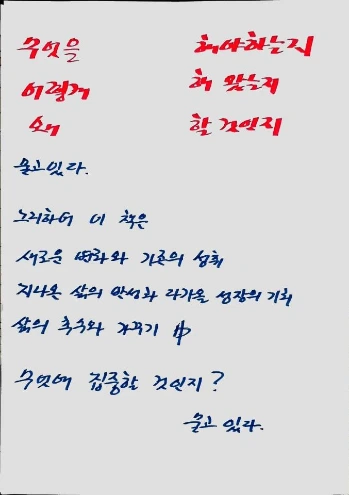 무엇을 해야하는지
어떻게 해 왔는지
왜 할 것인지
묻고있다.
노리하여 이 책은
새로운 변화와 기존의 성취
지나온 삶의 반성과 다가올 성장의 기회
삶의 축수와 가꾸기 中
무엇에 집중할 것인지?
묻고 있다.